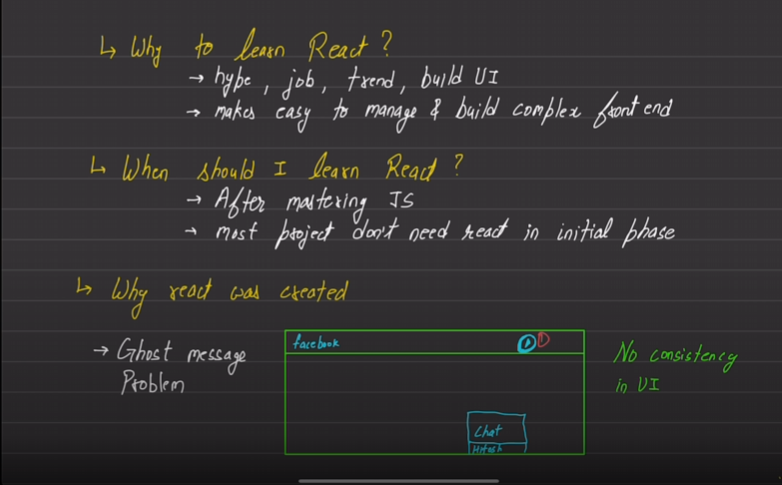 ↳ Why to learn React ?
→ hype, job, trend, build UI
→ makes easy to manage & build complex front end
↳ When should I learn React ?
→ After mastering JS
→ most project don't need react in initial phase
↳ Why react was created
→ Ghost message
Problem
facebook
Chat
Hitesh
No consistency
in UI